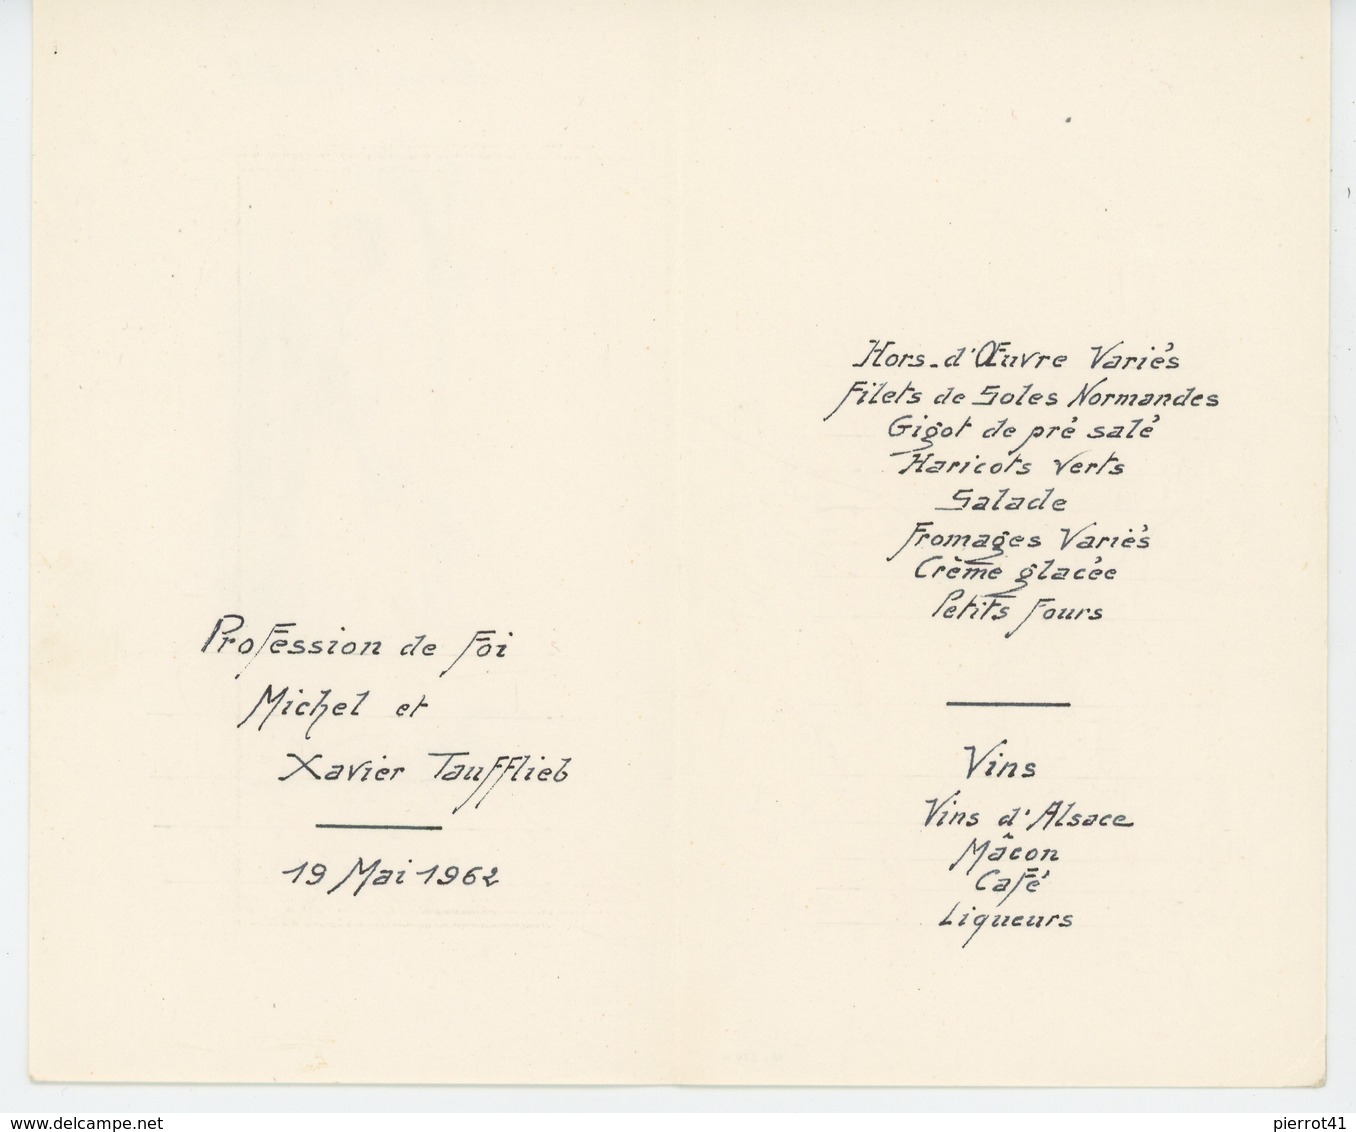 Profession de Foi
Michel et
Xavier Taufflieb
19 Mai 1962
Hors-d'Œuvre Variés
Filets de Soles Normandes
Gigot de pré salé
Haricots Verts
Salade
Fromages Variés
Crème glacée
Petits Fours
Vins
Vins d'Alsace
Mâcon
Café
Liqueurs
www.delcampe.net
pierrot41